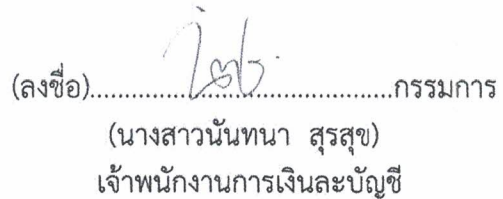 (ลงชื่อ)..................................................กรรมการ
(นางสาวนันทนา สุรสุข)
เจ้าพนักงานการเงินละบัญชี